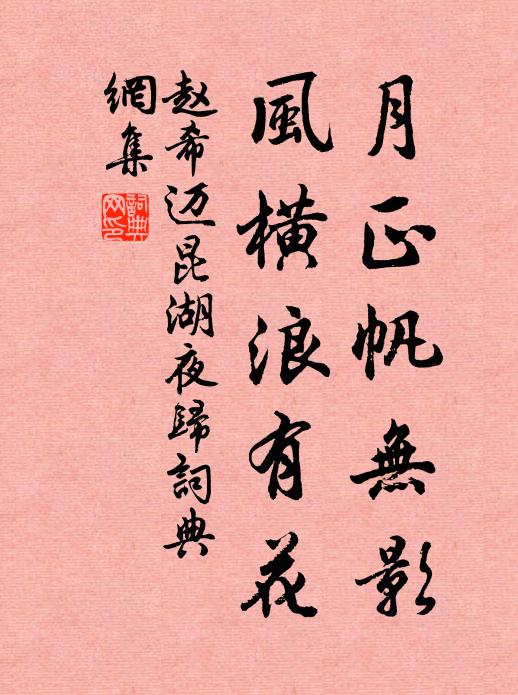 月正帆無影
風橫浪有花
赵希迈昆湖夜歸詞典
網集
詞典
网印